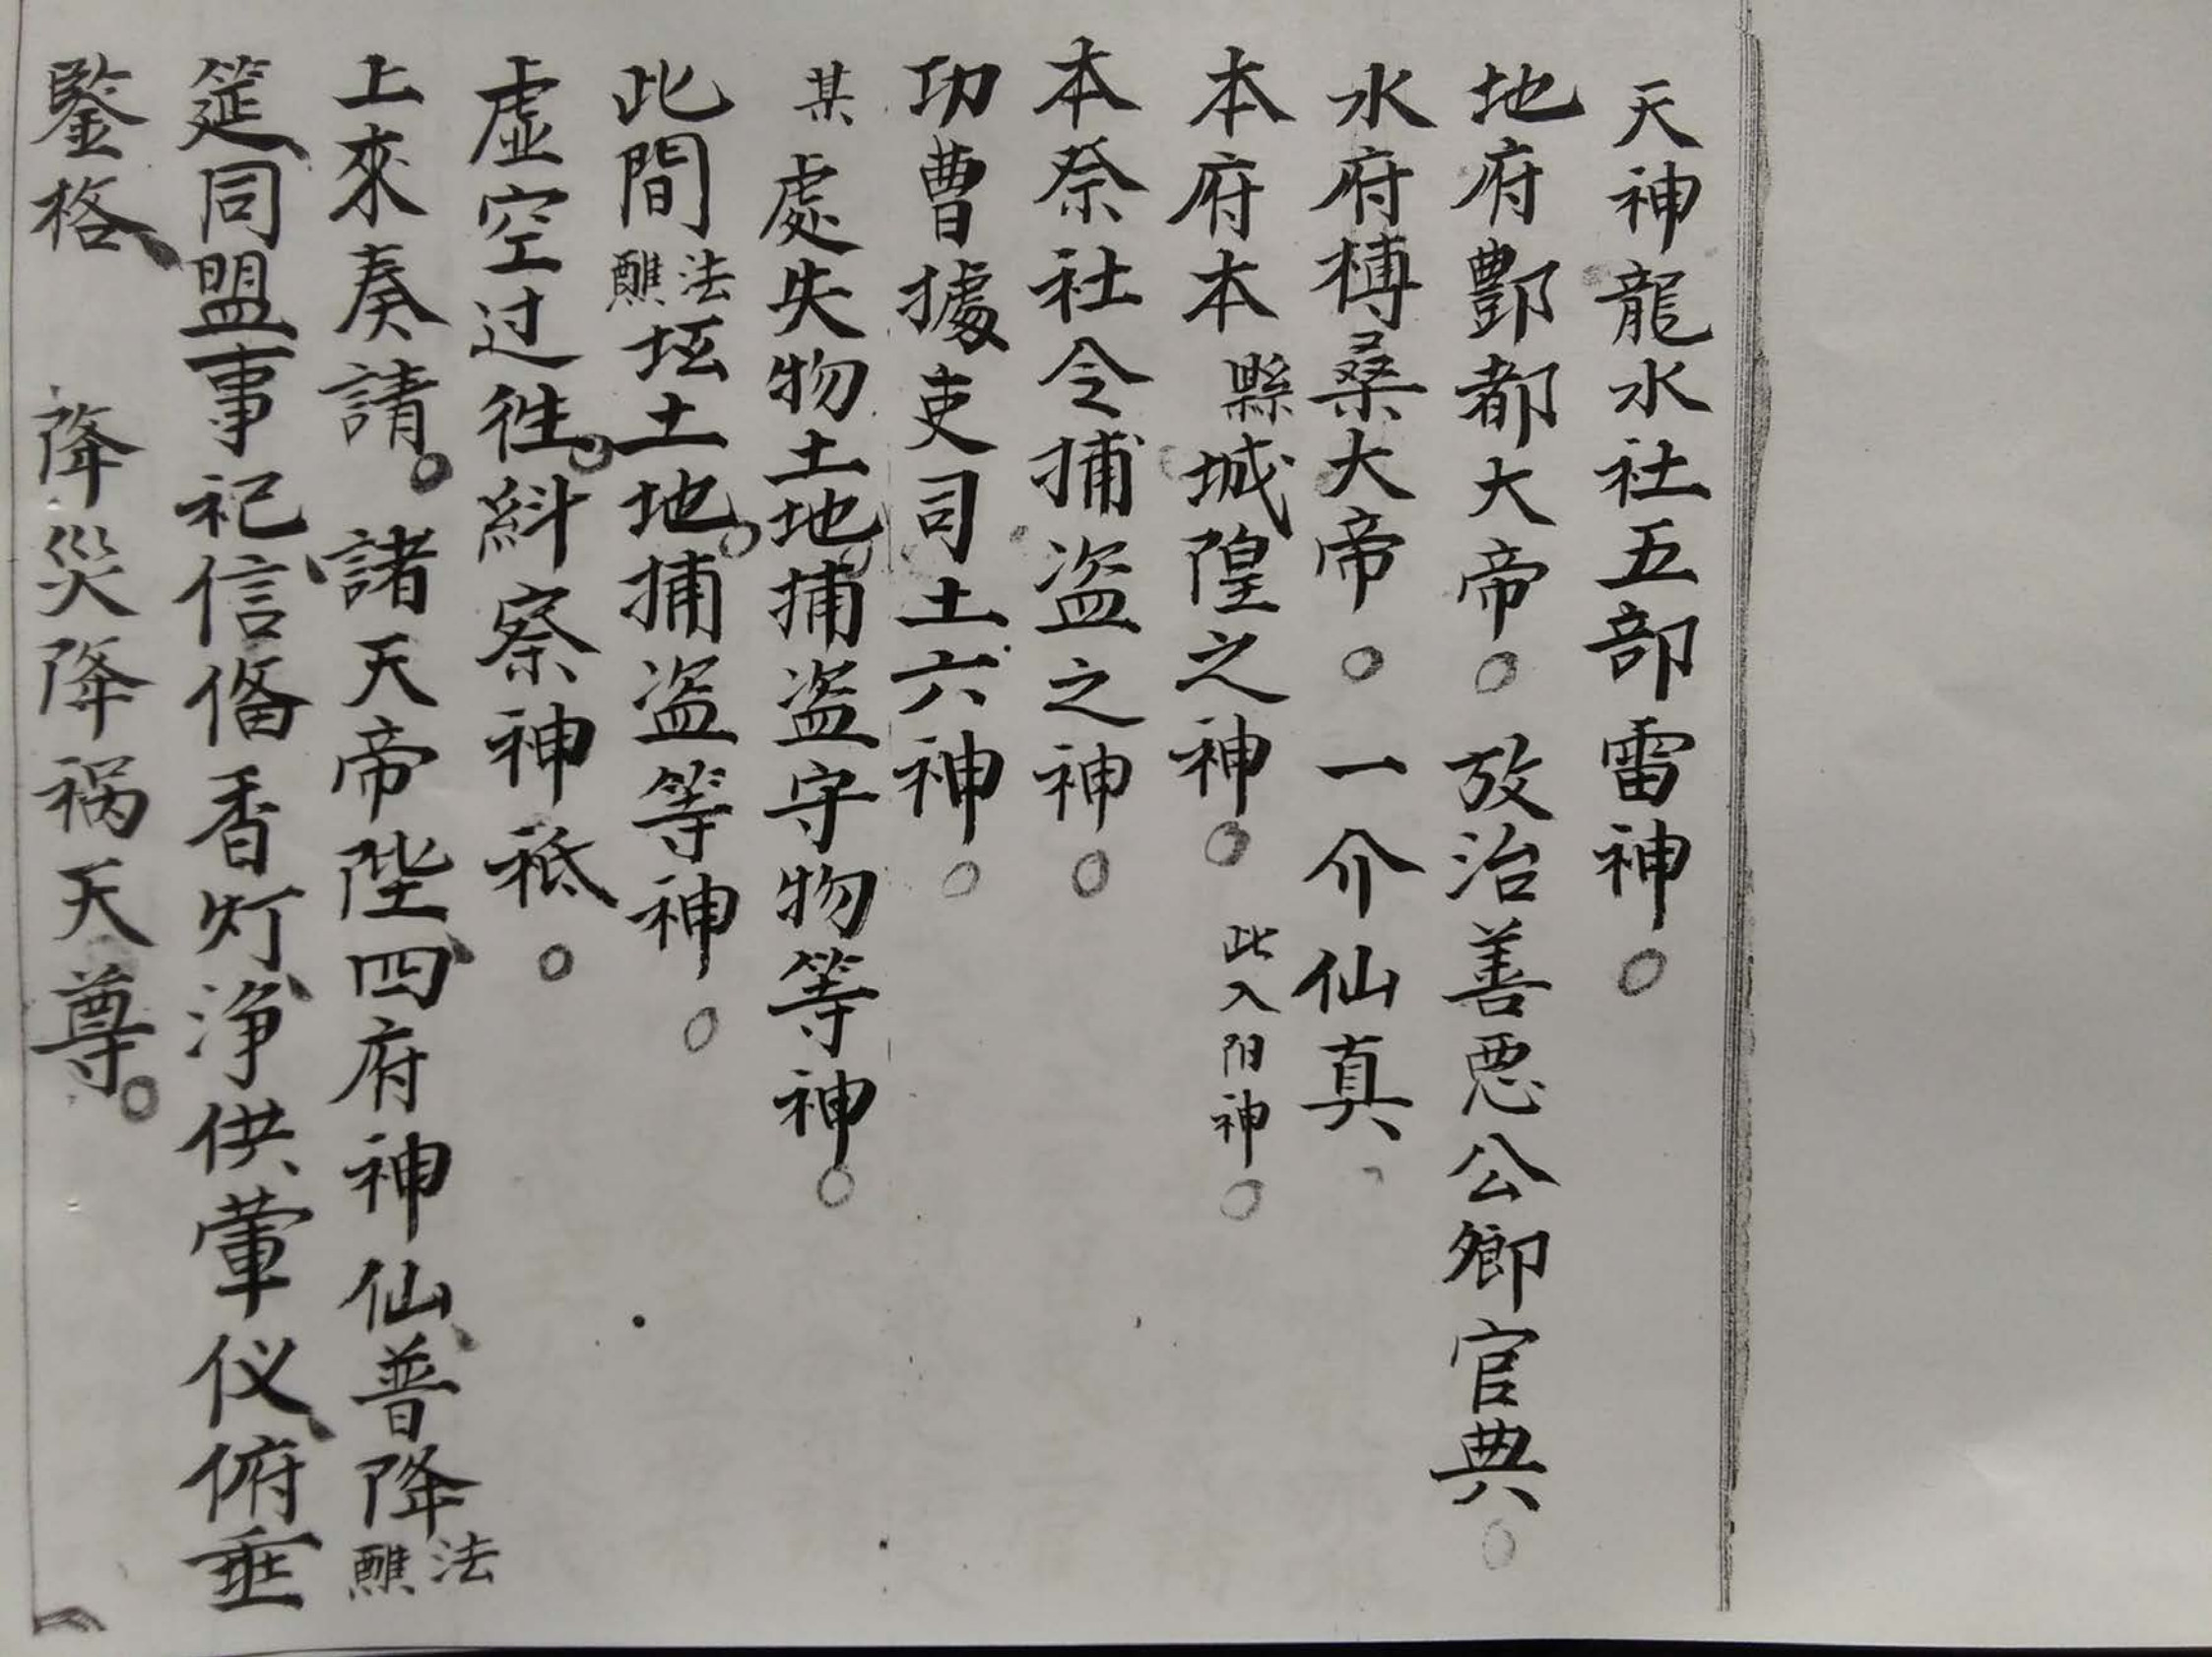 天神龍水社五部雷神。
地府酆都大帝。放治善恶公卿官典。
水府榑桑大帝。一介仙真
本府本縣城隍之神。此入阳神。
本祭社令捕盗之神。
功曹據吏司土六神。
某處失物土地捕盗守物等神。
此間法醮坛土地捕盗等神。
虚空过徃。糾察神祗。
上來奏請。諸天帝陛、四府神仙、普降法醮
筵、同盟事祀信俻香灯、净供葷仪、俯垂
鍳格、降災降祸天尊。